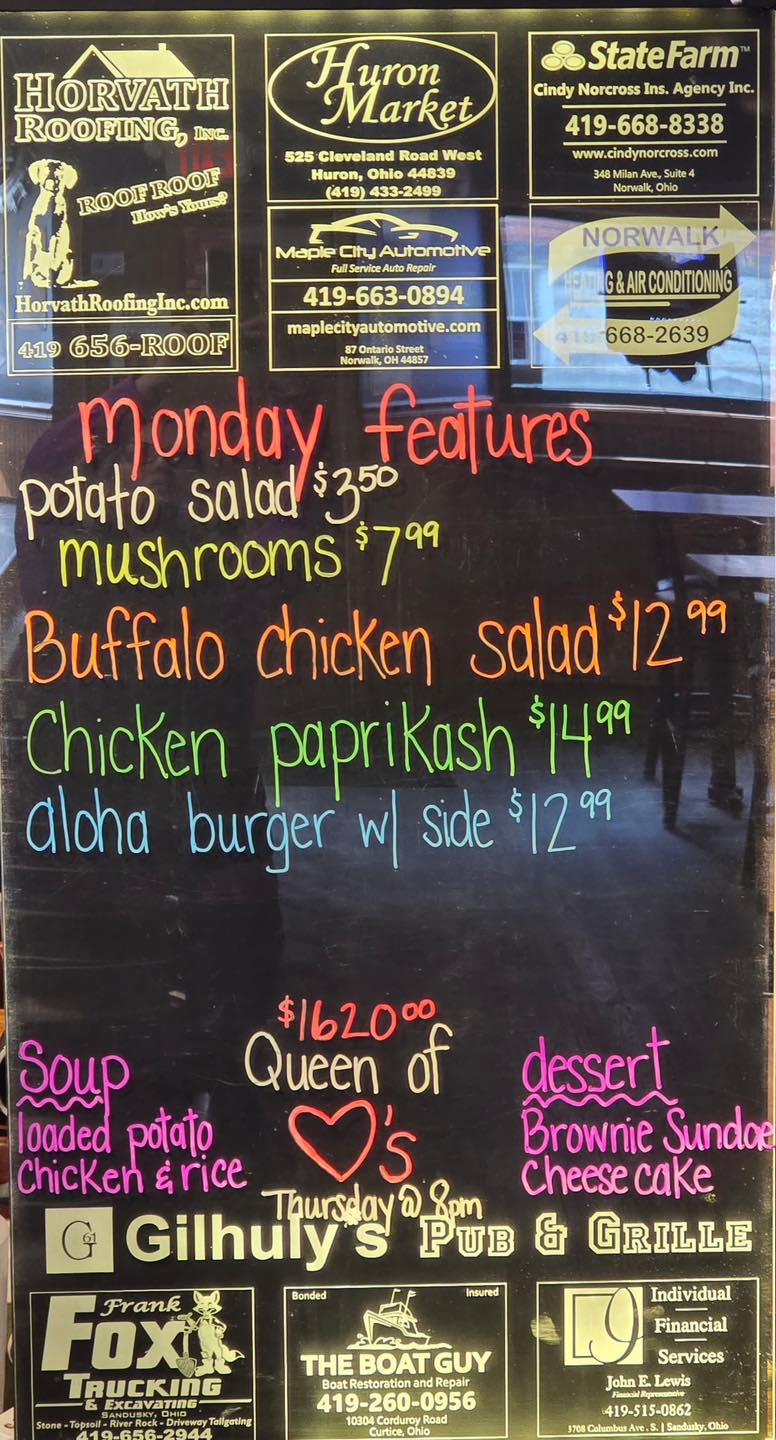 HORVATH
ROOFING, INC.
ROOF ROOF
How's Yours?
HorvathRoofingInc.com
419 656-ROOF
Huron
Market
525 Cleveland Road West
Huron, Ohio 44839
(419) 433-2499
Maple City Automotive
Full Service Auto Repair
419-663-0894
maplecityautomotive.com
87 Ontario Street
Norwalk, OH 44857
StateFarm™
Cindy Norcross Ins. Agency Inc.
419-668-8338
www.cindynorcross.com
348 Milan Ave., Suite 4
Norwalk, Ohio
NORWALK
HEATING & AIR CONDITIONING
419-668-2639
Monday features
potato salad $3.50
mushrooms $7.99
Buffalo chicken salad $12.99
Chicken paprikash $14.99
aloha burger w/ side $12.99
Soup
loaded potato
Chicken & rice
$1620.00
Queen of
♡'s
Thursday @ 8pm
dessert
Brownie Sundae
Cheesecake
G61
Gilhuly's PUB & GRILLE
Frank
FOX
TRUCKING
& EXCAVATING
SANDUSKY, OHIO
Stone - Topsoil - River Rock - Driveway Tailgating
419-656-2944
Bonded Insured
THE BOAT GUY
Boat Restoration and Repair
419-260-0956
10304 Corduroy Road
Curtice, Ohio
Individual
Financial
Services
John E. Lewis
Financial Representative
419-515-0862
3708 Columbus Ave. S. | Sandusky, Ohio